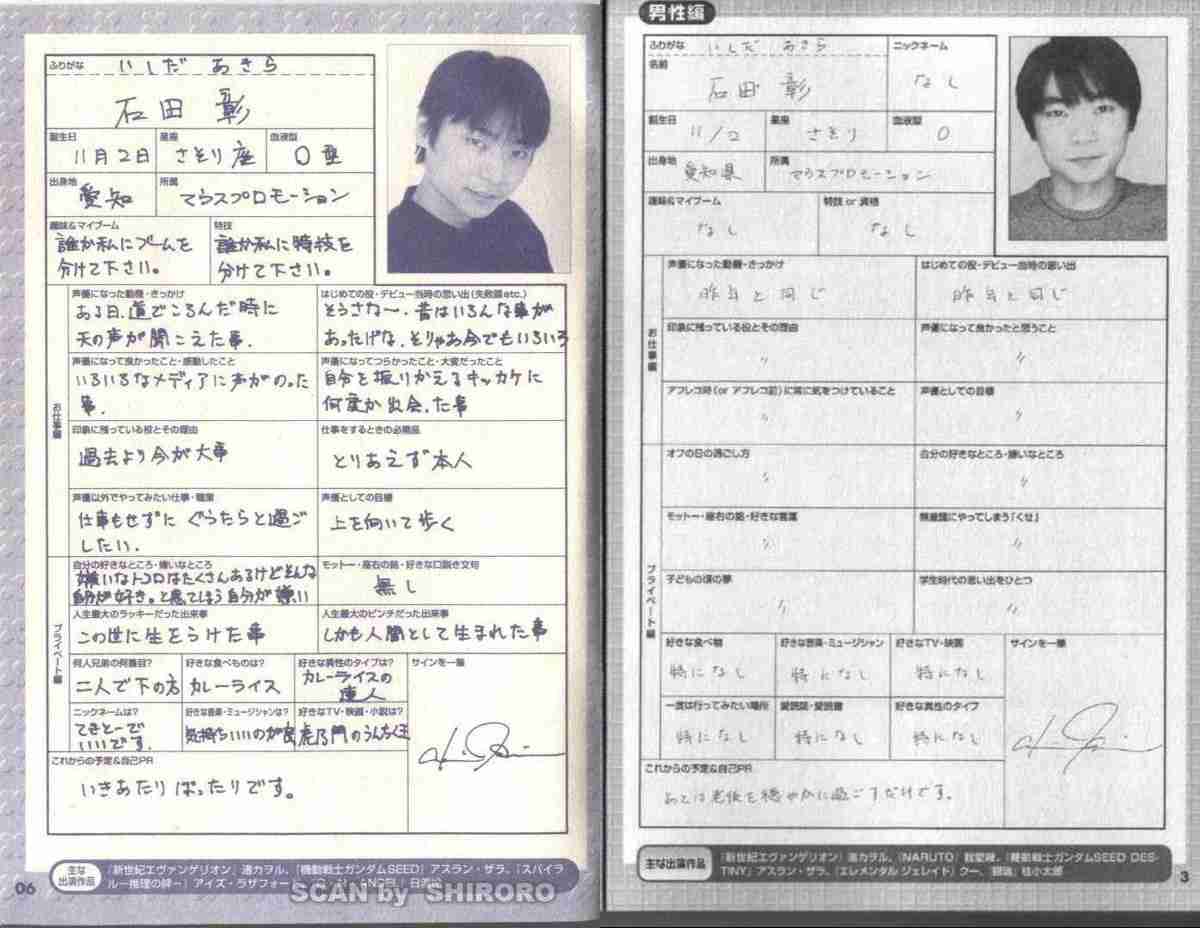 ふりがな いしだ あきら
石田 彰
誕生日 星座 血液型
11月2日 さそり座 O型
出身地 所属
愛知 てらスプロモーション
趣味&マイブーム 特技
誰か私にブームを 誰か私に特技を
分けて下さい。 分けて下さい。
お仕事編
声優になった動機・きっかけ
ある日、道でころんだ時に
天の声が聞こえた事.
はじめての役・デビュー当時の思い出(失敗談etc.)
そうさな〜、昔はいろんな事が
あったけな、そりゃあ今でもいろいろ
声優になって良かったこと・感動したこと
いろいろなメディアに声がのった
事.
声優になってつらかったこと・大変だったこと
自分を振りかえるキッカケに
何度か出会った事
印象に残っている役とその理由
過去より今が大事
仕事をするときの必需品
とりあえず本人
声優以外でやってみたい仕事・職業
仕事もせずに ぐうたらと過ご
したい.
声優としての目標
上を向いて歩く
プライベート編
自分の好きなところ・嫌いなところ
嫌いなトコロはたくさんあるけどそんな
自分が好き。と思てしまう自分が嫌い
モットー・座右の銘・好きな口説き文句
無し
人生最大のラッキーだった出来事
この世に生をうけた事
人生最大のピンチだった出来事
しかも人間として生まれた事
何人兄弟の何番目?
二人で下の方
好きな食べものは?
カレーライス
好きな異性のタイプは?
カレーライスの
達人
サインを一筆
ニックネームは?
てきとーで
いいです.
好きな音楽・ミュージシャンは?
気持ちいいのが
好きなTV・映画・小説は?
虎ノ門のうんちく王
これからの予定&自己PR
いきあたりばったりです。
主な出演作品
『新世紀エヴァンゲリオン』渚カヲル、『機動戦士ガンダムSEED』アスラン・ザラ、『スパイラ
ル〜推理の絆〜』アイズ・ラザフォー
06
SCAN by SHIRORO
男性編
ふりがな いしだ あきら
名前
石田 彰
ニックネーム
なし
誕生日 星座 血液型
11/2 さそり O
出身地 所属
愛知県 てらスプロモーション
趣味&マイブーム 特技 or 資格
なし なし
お仕事編
声優になった動機・きっかけ はじめての役・デビュー当時の思い出
昨年と同じ 昨年と同じ
印象に残っている役とその理由 声優になって良かったと思うこと
〃 〃
アフレコ時(or アフレコ前)に常に気をつけていること 声優としての目標
〃 〃
プライベート編
オフの日の過ごし方 自分の好きなところ・嫌いなところ
〃 〃
モットー・座右の銘・好きな言葉 無意識にやってしまう「くせ」
〃 〃
子どもの頃の夢 学生時代の思い出をひとつ
〃 〃
好きな食べ物 好きな音楽・ミュージシャン 好きなTV・映画 サインを一筆
特になし 特になし 特になし
一度は行ってみたい場所 愛読誌・愛読書 好きな異性のタイプ
特になし 特になし 特になし
これからの予定&自己PR
あとは老後を穏やかに過ごすだけです。
主な出演作品
『新世紀エヴァンゲリオン』渚カヲル、『NARUTO』我愛羅、『機動戦士ガンダムSEED DES-
TINY』アスラン・ザラ、『エレメンタル ジェレイド』クー、『銀魂』桂小太郎
3